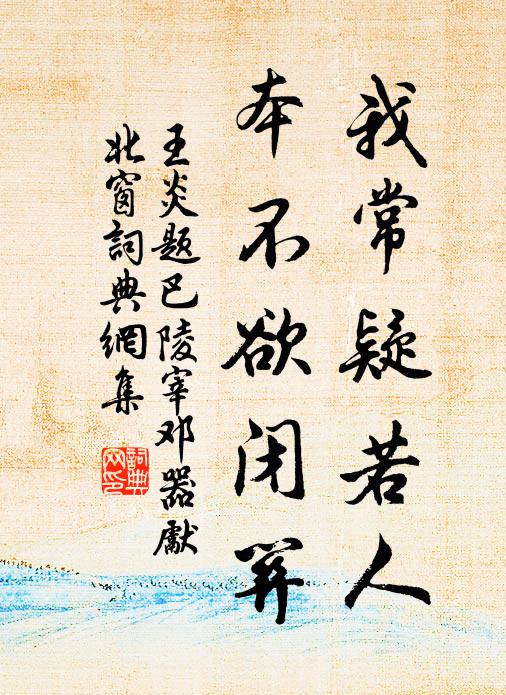 我常疑若人
本不欲闭关
王炎题巴陵宰邓器獻
北窗詞典網集
詞典
网印